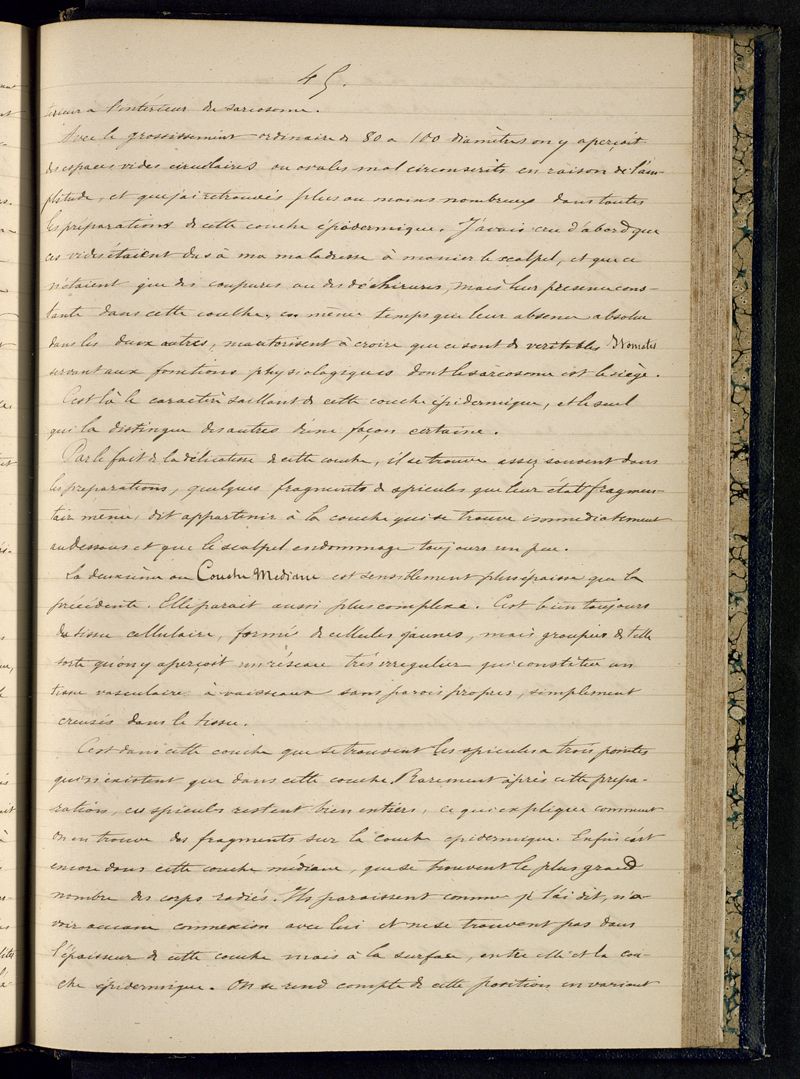 45.
térieur à l'intérieur du sarcosome.
Avec le grossissement ordinaire de 80 a 100 diamètres on y aperçoit
des espaces vides circulaires ou ovales mal circonscrits en raison de l'am-
plitude, et que j'ai retrouvés plus ou moins nombreux dans toutes
les préparations de cette couche épidermique. J'avais cru d'abord que
ces vides étaient dus à ma maladresse à manier le scalpel, et que ce
n'étaient que des coupures ou des déchirures, mais leur presence cons-
tante dans cette couche, en même temps que leur absence absolue
dans les deux autres, m'autorisent à croire que ce sont de veritables Stomates
servant aux fonctions physiologiques dont le sarcosome est le siège.
C'est là le caractère saillant de cette couche épidermique, et le seul
qui la distingue des autres d'une façon certaine.
Par le fait de la délicatesse de cette couche, il se trouve assez souvent dans
les preparations, quelques fragments de spicules que leur état fragmen-
taire même, dit appartenir à la couche qui se trouve immediatement
au dessous et que le scalpel endommage toujours un peu.
La deuxième ou Couche Mediane est sensiblement plus épaisse que la
précédente. Elle parait aussi plus complexe. C'est bien toujours
du tissu cellulaire, formé de cellules jaunes, mais groupées de telle
sorte qu'on y aperçoit un réseau très irregulier qui constitue un
tissu vasculaire à vaisseaux sans parois propres, simplement
creusés dans le tissu.
C'est dans cette couche que se trouvent les spicules a trois pointes
qui n'existent que dans cette couche. Rarement après cette prépa-
ration, ces spicules restent bien entiers, ce qui explique comment
on en trouve des fragments sur la couche epidermique. Enfin c'est
encore dans cette couche médiane, que se trouvent le plus grand
nombre des corps radiés. Ils paraissent comme je l'ai dit, n'a-
voir aucune connexion avec lui et ne se trouvent pas dans
l'épaisseur de cette couche mais à la surface, entre elle et la cou-
che épidermique. On se rend compte de cette position en variant